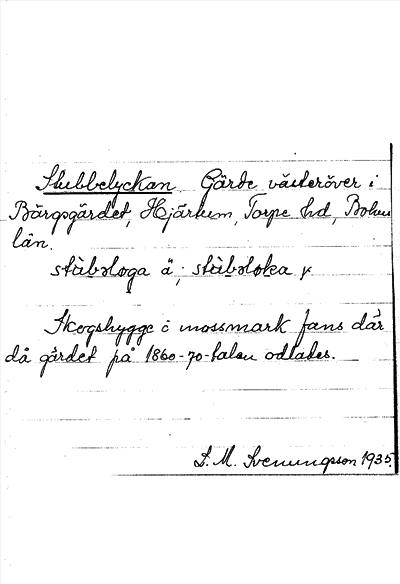 Stubbelyckan. Gärde västeröver i
Bärgsgärdet, Hjärtum, Torpe hd, Bohus
län.
stùbəloga ä; stùbəloka y
Skogshygge i mossmark fans där
då gärdet på 1860-70-talen odlades.
S. M. Svenungsson 1935.